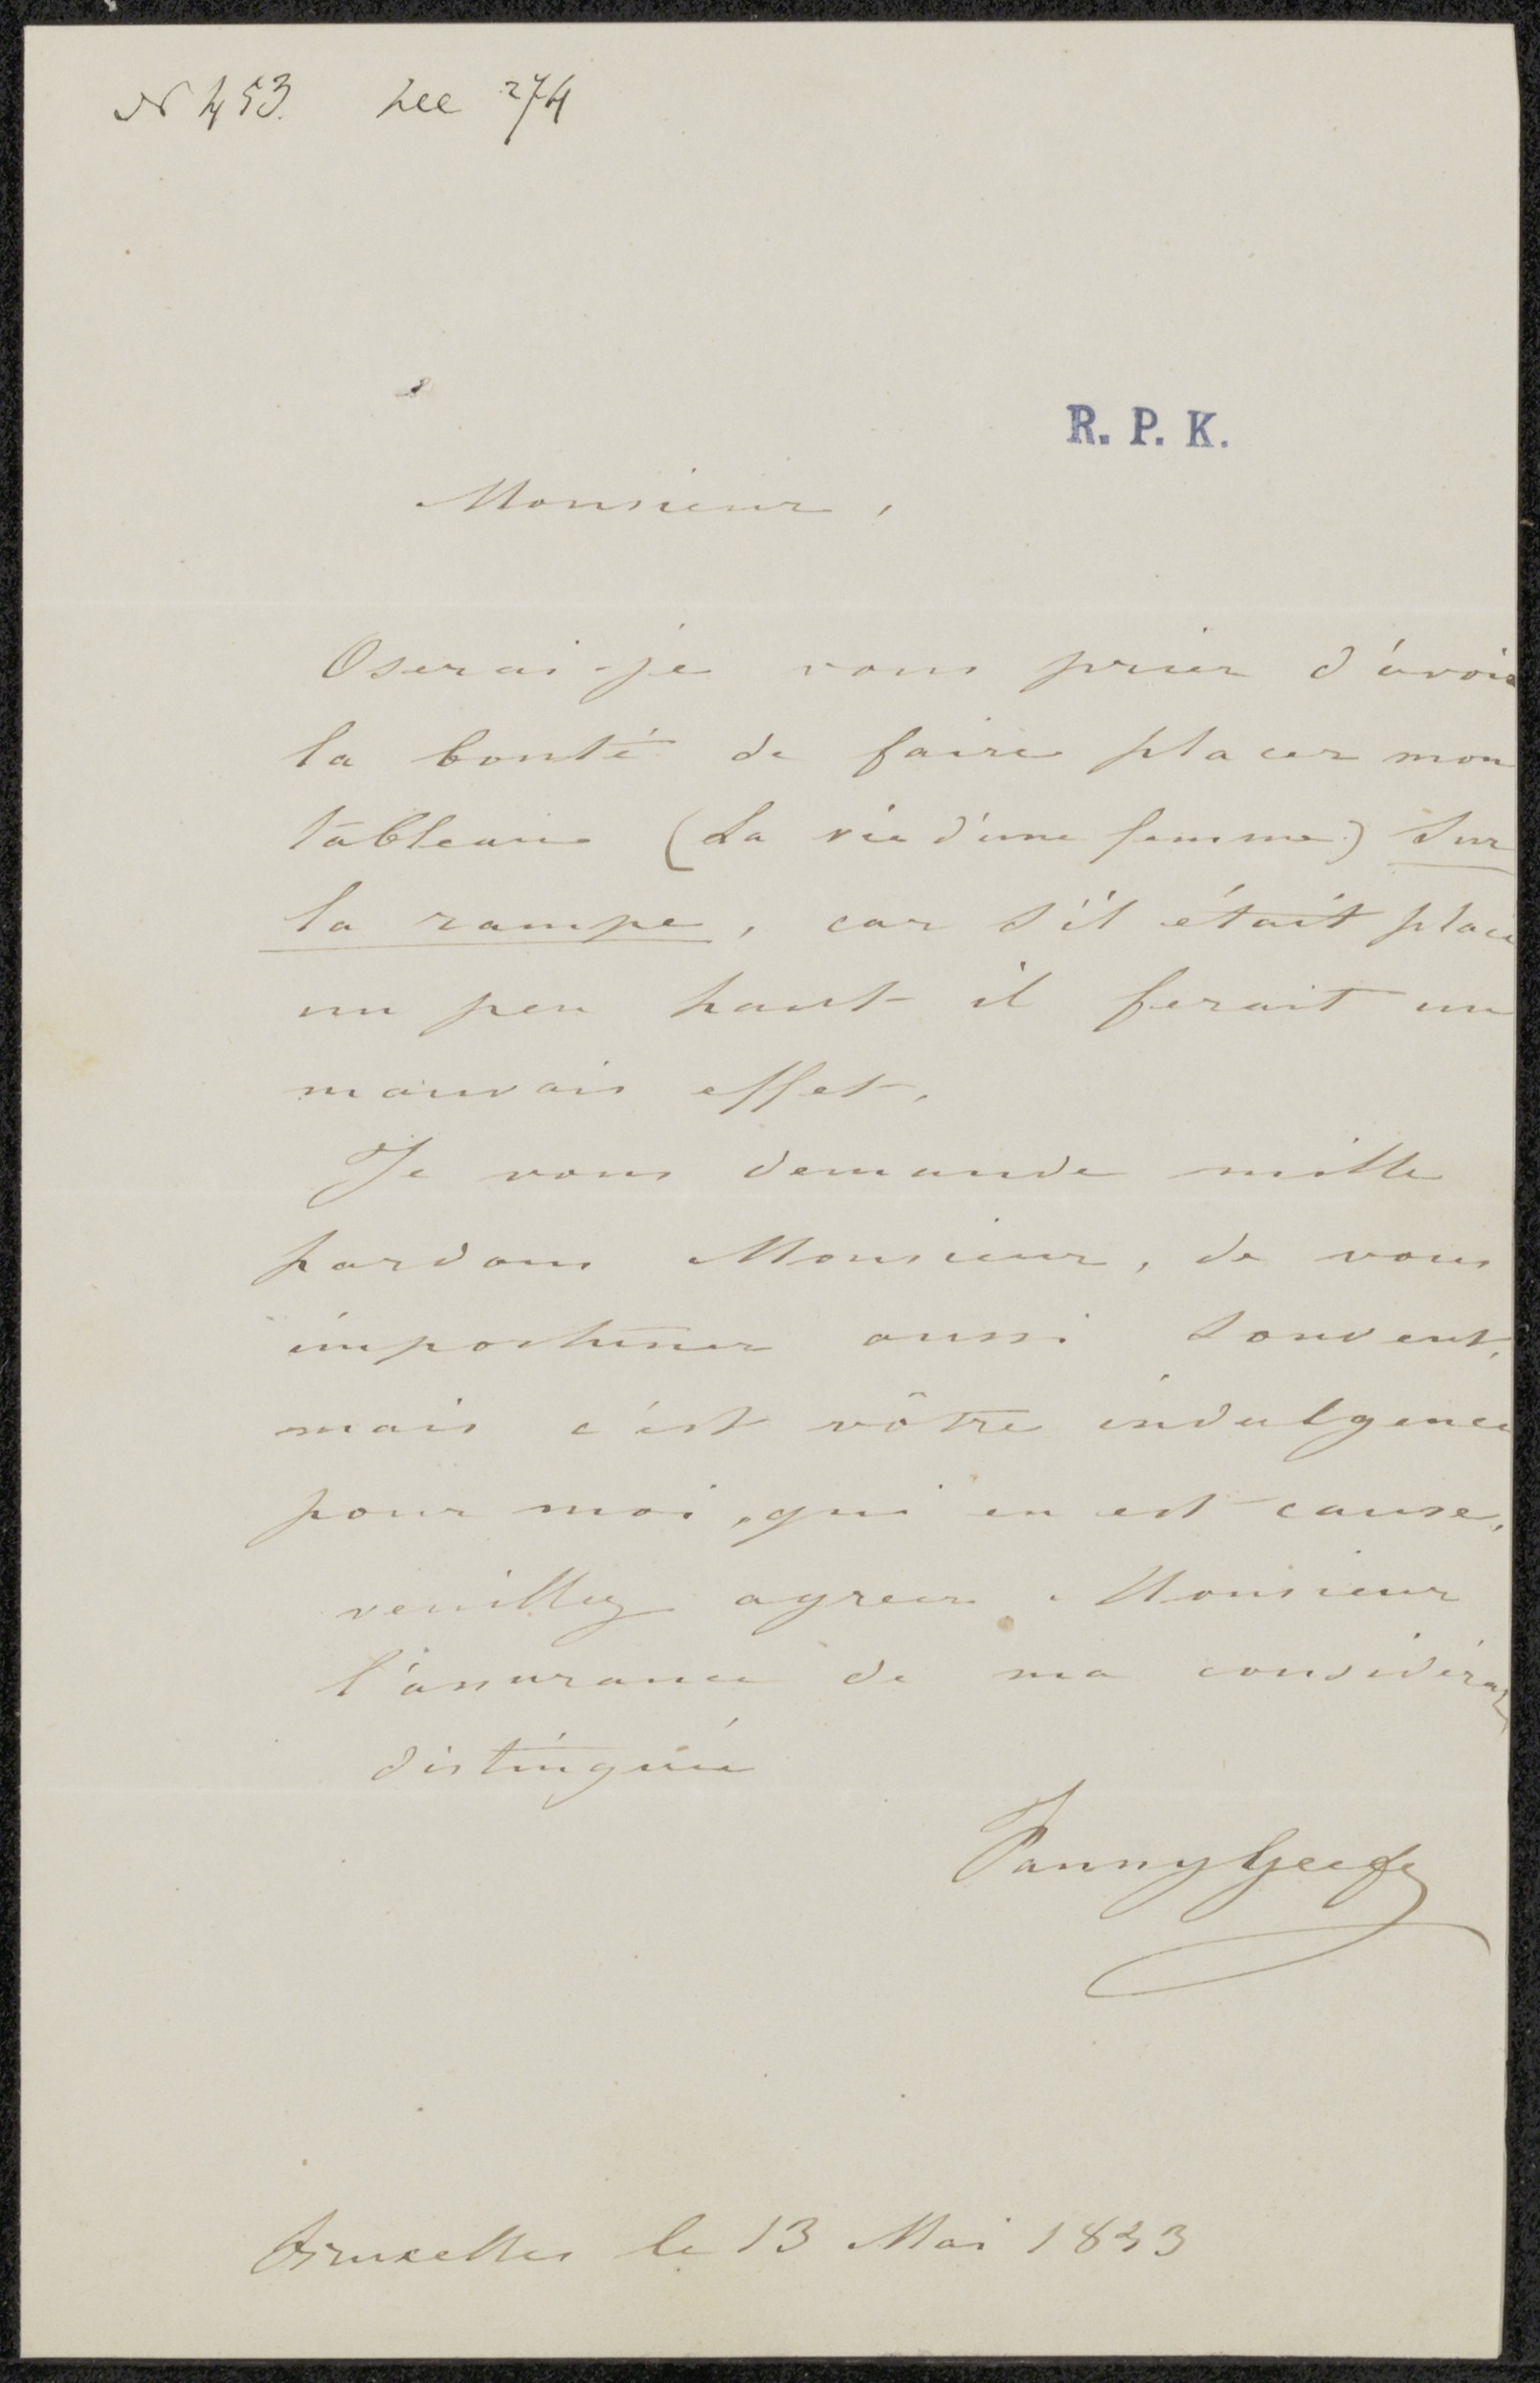 N 453. Lee 274
R. P. K.
Monsieur,
Oserai-je vous prier d'avoir
la bonté de faire placer mon
tableau (La vie d'une femme) sur
la rampe, car s'il était placé
un peu haut il ferait un
mauvais effet.
Je vous demande mille
pardons Monsieur, de vous
importuner aussi souvent,
mais c'est vôtre indulgence
pour moi, qui en est cause,
veuillez agreer Monsieur
l'assurance de ma considéra
distinguée
Fanny Geefs
Bruxelles le 13 Mai 1843